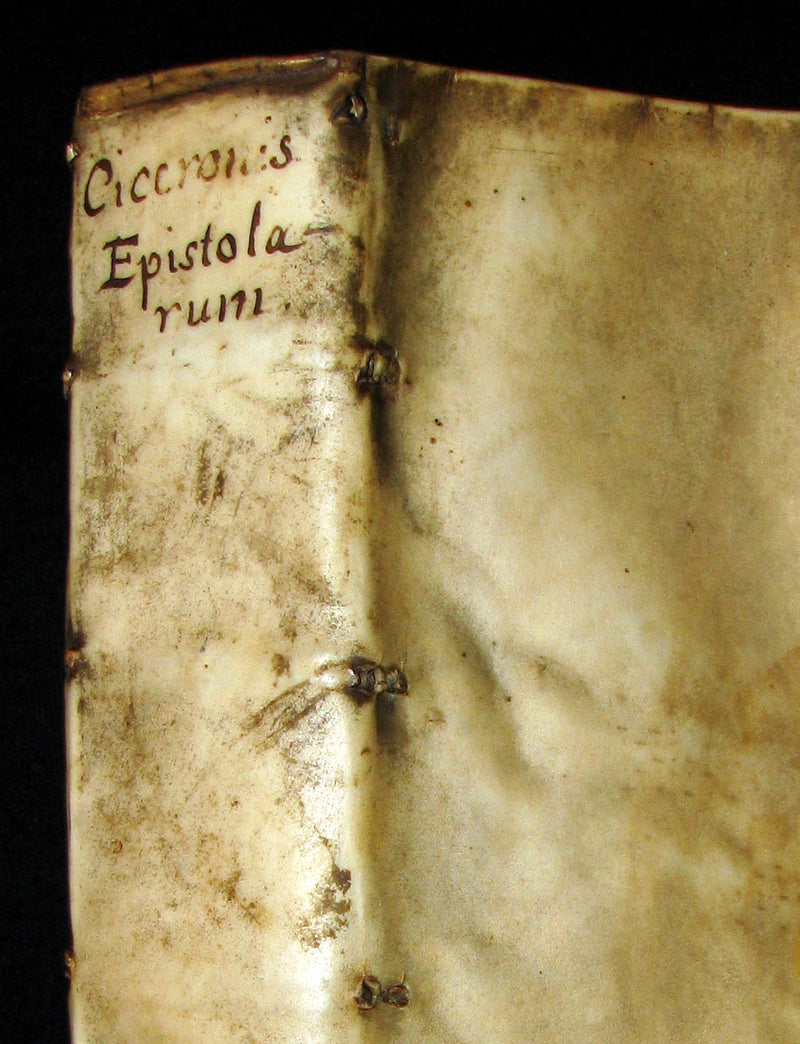 Ciceronis
Epistola-
rum.